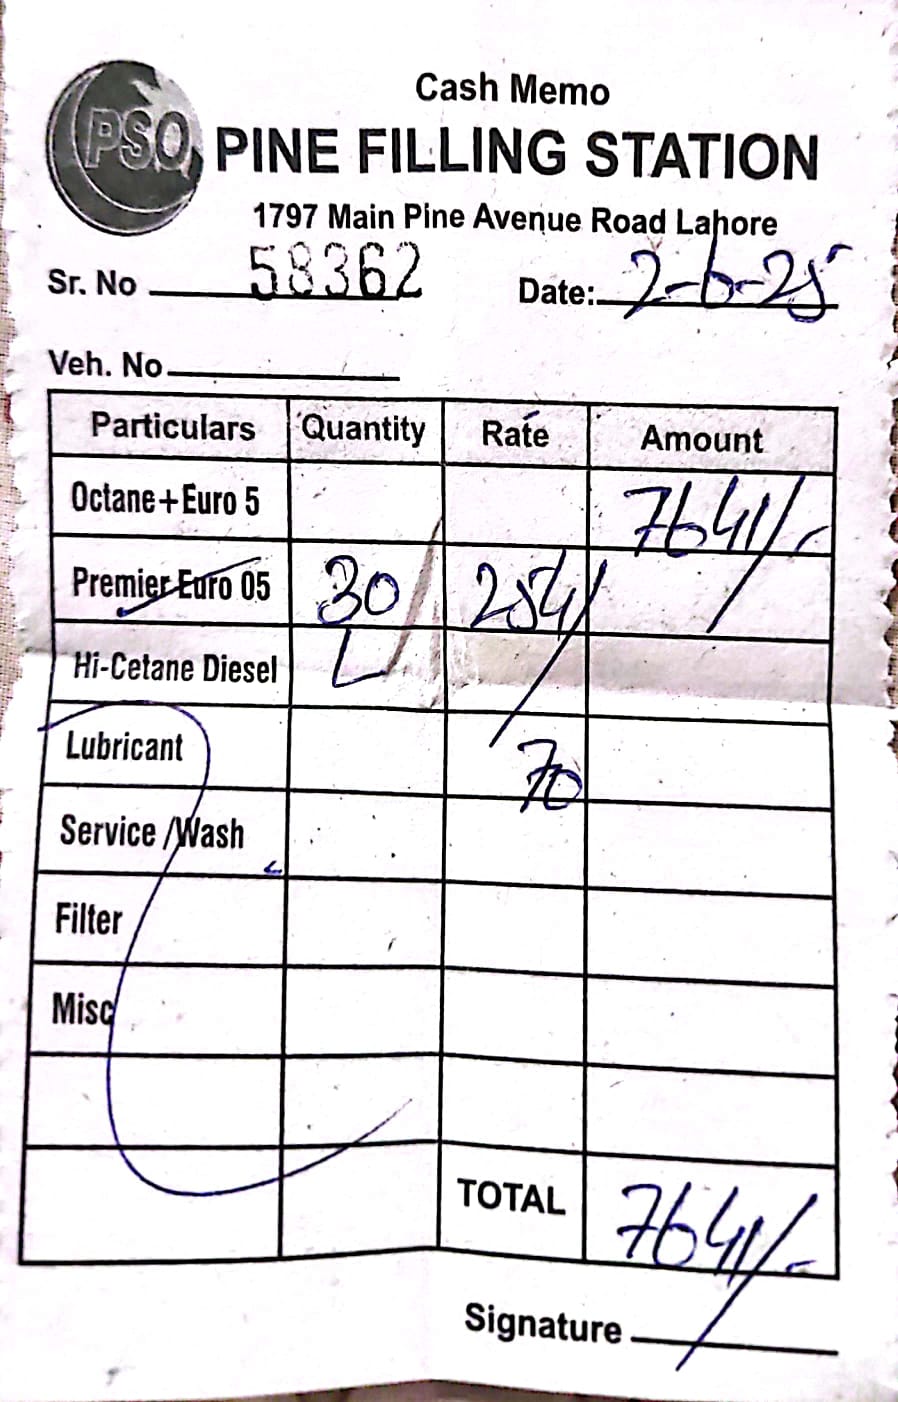 Cash Memo
PSO PINE FILLING STATION
1797 Main Pine Avenue Road Lahore
Sr. No 58362 Date: 2-6-25
Veh. No
Particulars Quantity Rate Amount
Octane+Euro 5 7641/-
Premier Euro 05 30 254/
Hi-Cetane Diesel L
Lubricant 70
Service /Wash
Filter
Misc
TOTAL 7641/-
Signature